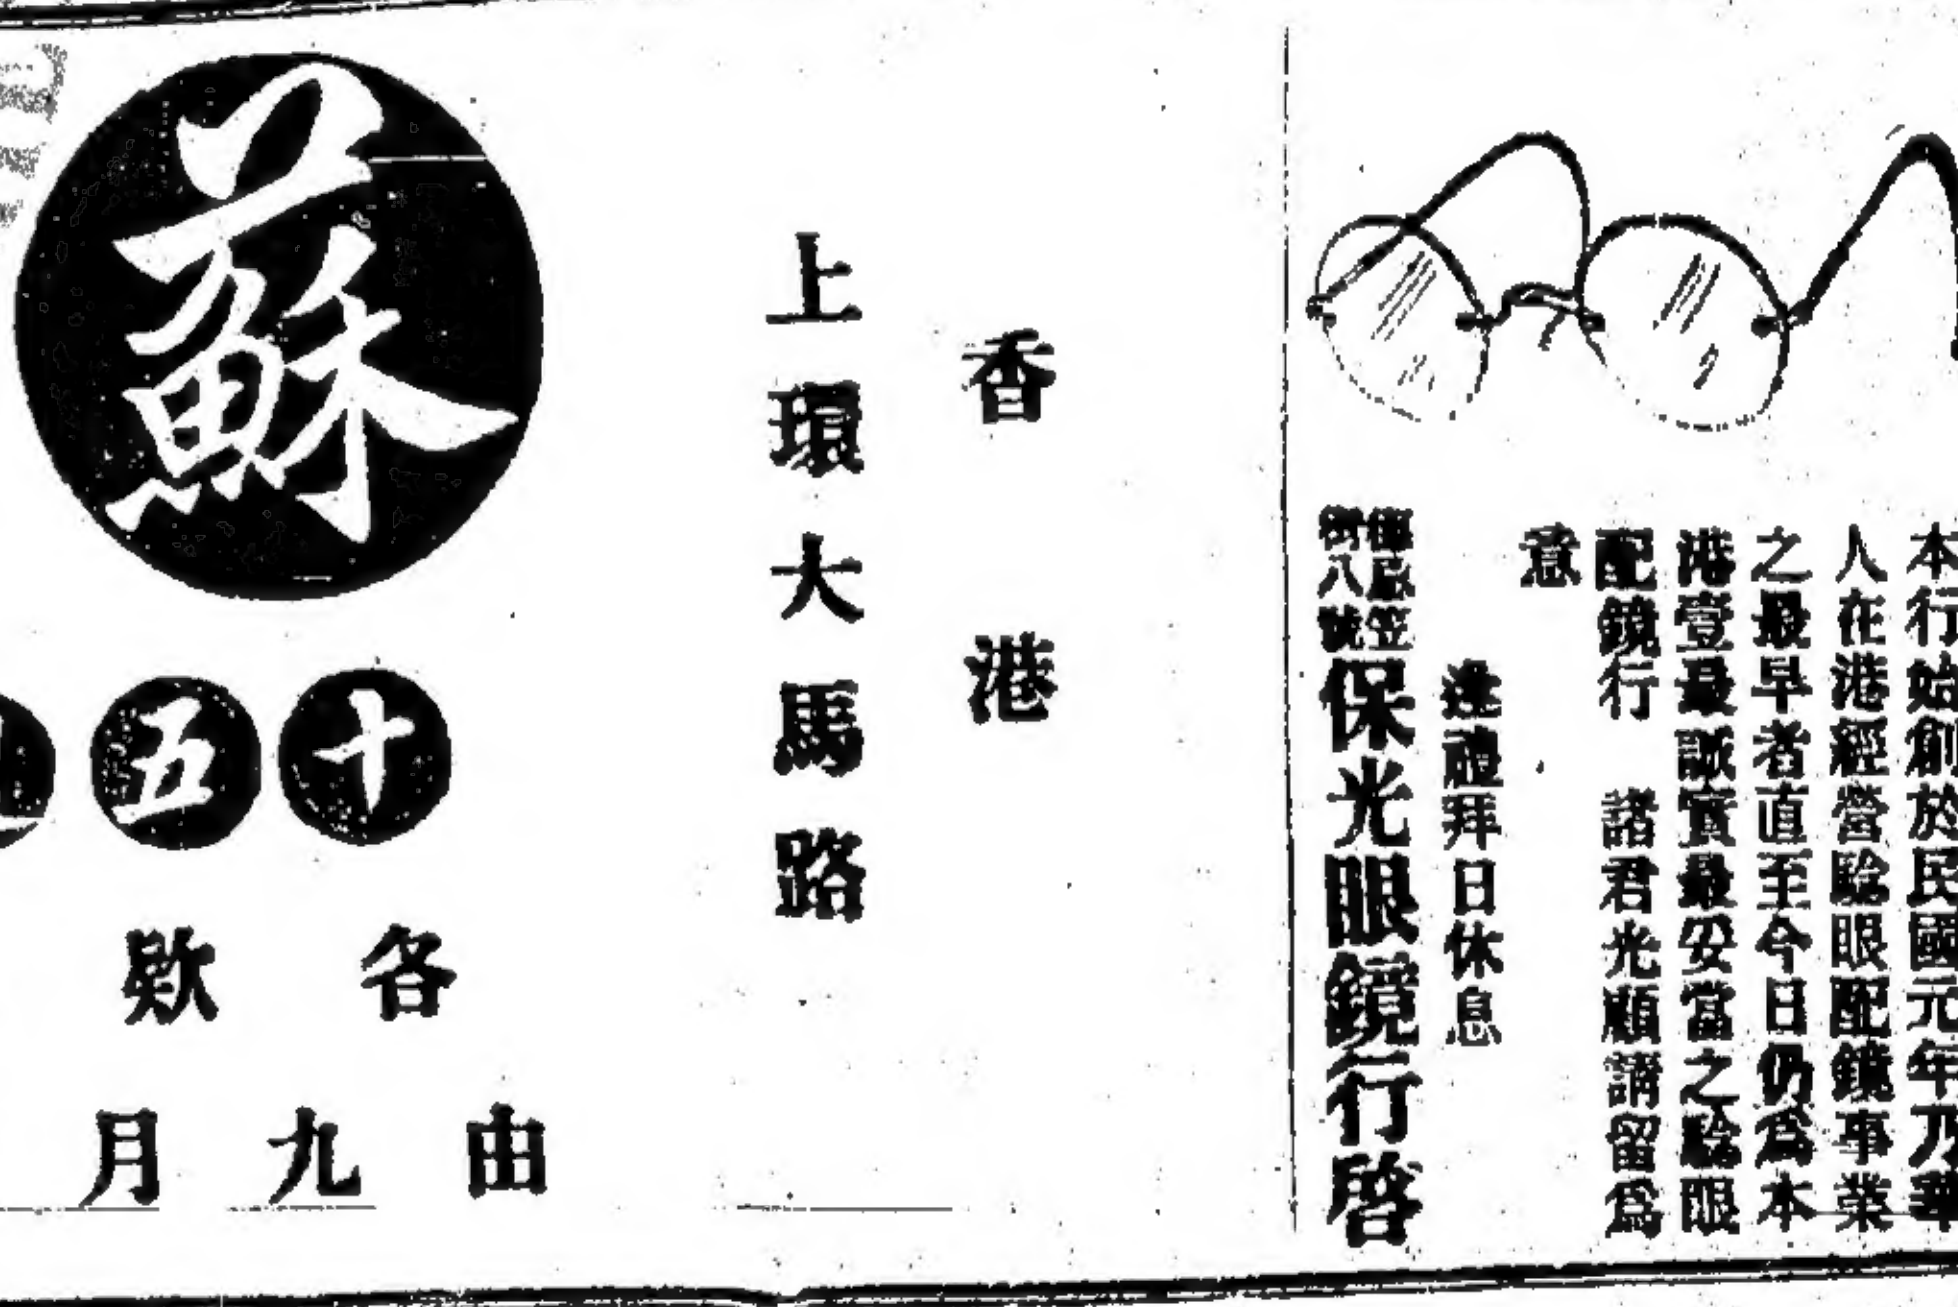 本行始創於民國元年乃華
人在港經營驗眼配鏡事業
之最早者直至今日仍為本
港壹最誠實最妥當之驗眼
配鏡行 諸君光顧請留為
意
逢禮拜日休息
德忌笠街八號 保光眼鏡行啓
香港
上環大馬路
蘇
十五
各欵
由九月